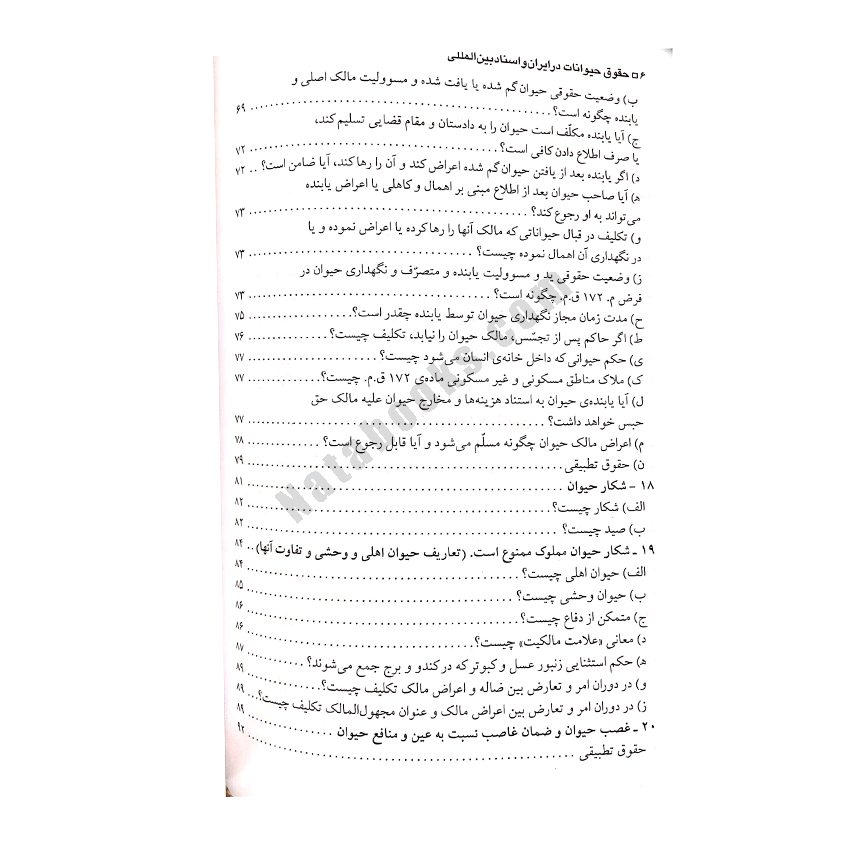 ۶ □ حقوق حیوانات در ایران و اسناد بین‌المللی
ب) وضعیت حقوقی حیوان گم شده یا یافت شده و مسوولیت مالک اصلی و
یابنده چگونه است؟ ۶۹
ج) آیا یابنده مکلّف است حیوان را به دادستان و مقام قضایی تسلیم کند،
یا صرف اطلاع دادن کافی است؟ ۷۲
د) اگر یابنده بعد از یافتن حیوان گم شده اعراض کند و آن را رها کند، آیا ضامن است؟ ۷۲
ه) آیا صاحب حیوان بعد از اطلاع مبنی بر اهمال و کاهلی یا اعراض یابنده
می‌تواند به او رجوع کند؟ ۷۳
و) تکلیف در قبال حیواناتی که مالک آنها را رها کرده یا اعراض نموده و یا
در نگهداری آن اهمال نموده چیست؟ ۷۳
ز) وضعیت حقوقی ید و مسوولیت یابنده و متصرّف و نگهداری حیوان در
فرض م. ۱۷۲ ق.م. چگونه است؟ ۷۳
ح) مدت زمان مجاز نگهداری حیوان توسط یابنده چقدر است؟ ۷۵
ط) اگر حاکم پس از تجسّس، مالک حیوان را نیابد، تکلیف چیست؟ ۷۶
ی) حکم حیوانی که داخل خانه‌ی انسان می‌شود چیست؟ ۷۷
ک) ملاک مناطق مسکونی و غیر مسکونی ماده‌ی ۱۷۲ ق.م. چیست؟ ۷۷
ل) آیا یابنده‌ی حیوان به استناد هزینه‌ها و مخارج حیوان علیه مالک حق
حبس خواهد داشت؟ ۷۷
م) اعراض مالک حیوان چگونه مسلّم می‌شود و آیا قابل رجوع است؟ ۷۸
ن) حقوق تطبیقی ۷۹
۱۸ - شکار حیوان ۸۱
الف) شکار چیست؟ ۸۲
ب) صید چیست؟ ۸۲
۱۹ - شکار حیوان مملوک ممنوع است. (تعاریف حیوان اهلی و وحشی و تفاوت آنها) ۸۴
الف) حیوان اهلی چیست؟ ۸۴
ب) حیوان وحشی چیست؟ ۸۵
ج) متمکن از دفاع چیست؟ ۸۶
د) معانی «علامت مالکیت» چیست؟ ۸۶
ه) حکم استثنایی زنبور عسل و کبوتر که در کندو و برج جمع می‌شوند؟ ۸۷
و) در دوران امر و تعارض بین ضاله و اعراض مالک تکلیف چیست؟ ۸۹
ز) در دوران امر و تعارض بین اعراض مالک و عنوان مجهول‌المالک تکلیف چیست؟ ۸۹
۲۰ - غصب حیوان و ضمان غاصب نسبت به عین و منافع حیوان ۸۹
حقوق تطبیقی ۹۲
Natabooks.com